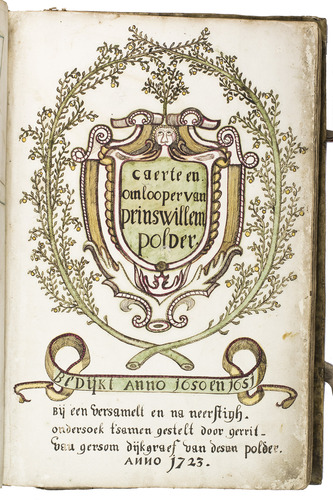 caerte en
omlooper van
prins willem
polder.
BEDIJKT ANNO 1650 en 1651
Bij een versamelt en na neerstigh.
ondersoek t'samen gestelt door gerrit.
van gersom dijkgraef van desan polder.
ANNO 1723.